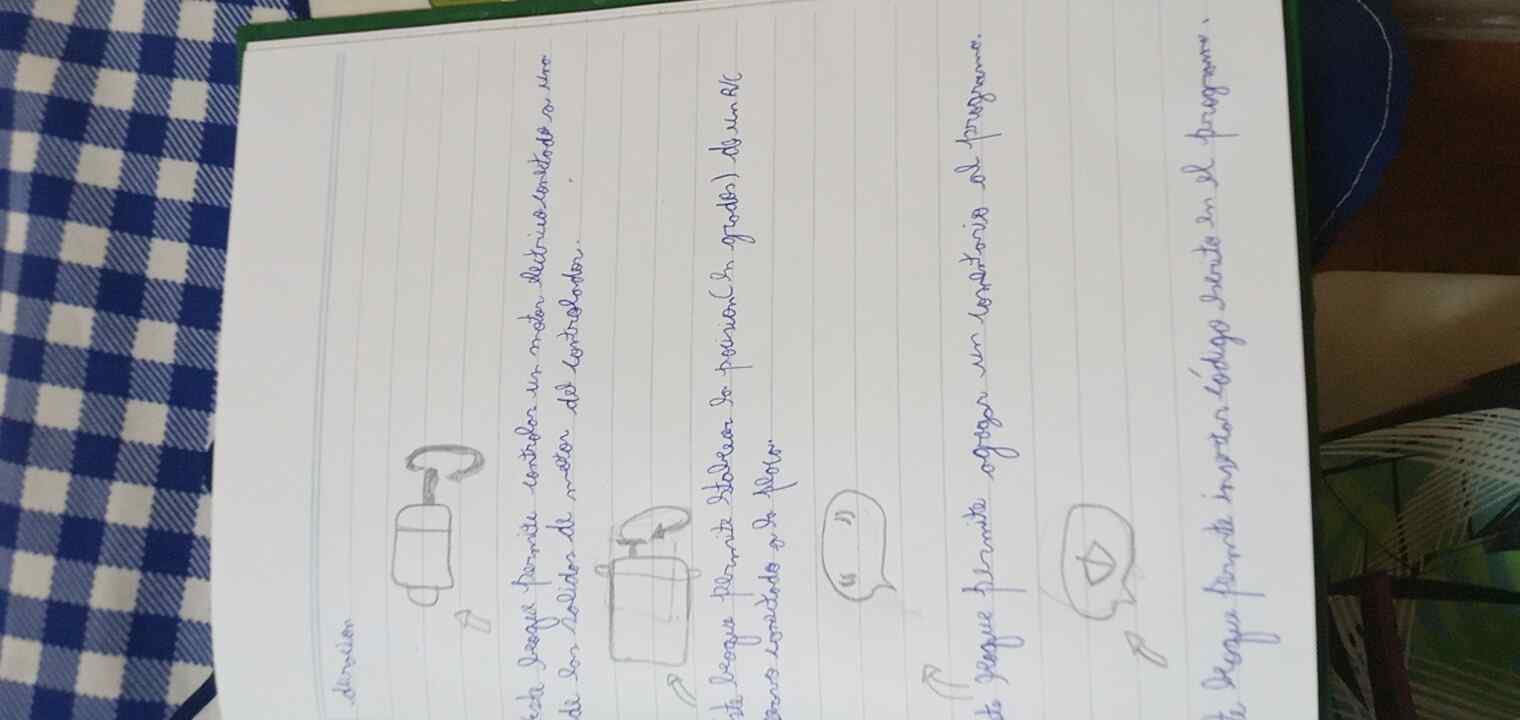 duracion
este bloque permite controlar un motor electrico conectado a una
de las salidas de motor del controlador.
ste bloque permite stablecer la posicion (en grados) de un R/C
conectado a la placa
" "
te bloque permite agregar un comentario al programa.
te bloque permite insertar código escrito en el programa.